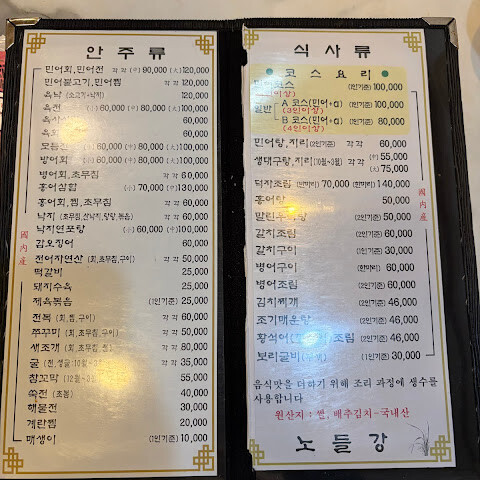 안주류
민어회,민어전 각 각 (中) 90,000 (大) 120,000
민어불고기,민어찜 각 각 120,000
육낙 (소고기+낙지) 120,000
육전 (小) 60,000 (中) 80,000 (大) 100,000
육사
육회
모듬전 (小) 60,000 (中) 80,000 (大) 100,000
방어회 (小) 60,000 (中) 80,000 (大) 100,000
병어회,초무침 각 각 60,000
홍어삼합 (小) 70,000 (中) 130,000
홍어회,찜,초무침 각 각 60,000
낙지 (초무침,산낙지,탕탕,볶음) 각 각 60,000
낙지연포탕 (小) 60,000 (中) 100,000
갑오징어 60,000
전어자연산 (회,초무침,구이) 각 각 50,000
떡갈비 25,000
돼지수육 25,000
제육볶음 (1인기준) 25,000
전복 (회,찜,구이) 60,000
쭈꾸미 (회,초무침,구이) 50,000
새조개 (회,초무침,찜) 80,000
굴 (전,생굴:10월~3월) 각 각 35,000
참꼬막 (12월~3월) 55,000
쑥전 (초봄) 40,000
해물전 30,000
계란찜 20,000
매생이 (1인기준) 10,000
國内産
식사류
코스요리
코스 (1인기준) 100,000
이상)
일반 A 코스(민어+α) (1인기준) 100,000
(3인이상)
B 코스(민어+α) (1인기준) 80,000
(4인이상)
민어탕,지리 (2인기준) 각 각 60,000
생태구탕,지리 (10월~3월) 각 각 (中) 55,000
(大) 75,000
덕자조림 (반마리) 70,000 (한마리) 140,000
홍어탕 50,000
말린 탕 (2인기준) 50,000
갈치조림 (2인기준) 60,000
갈치구이 (1인기준) 30,000
병어구이 (한마리) 60,000
병어조림 (2인기준) 60,000
김치찌개 (2인기준) 46,000
조기매운탕 (2인기준) 46,000
황석어 조림 (2인기준) 46,000
보리굴비 (1인기준) 30,000
國内産
음식맛을 더하기 위해 조리 과정에 생수를
사용합니다
원산지 : 쌀, 배추김치-국내산
노들강